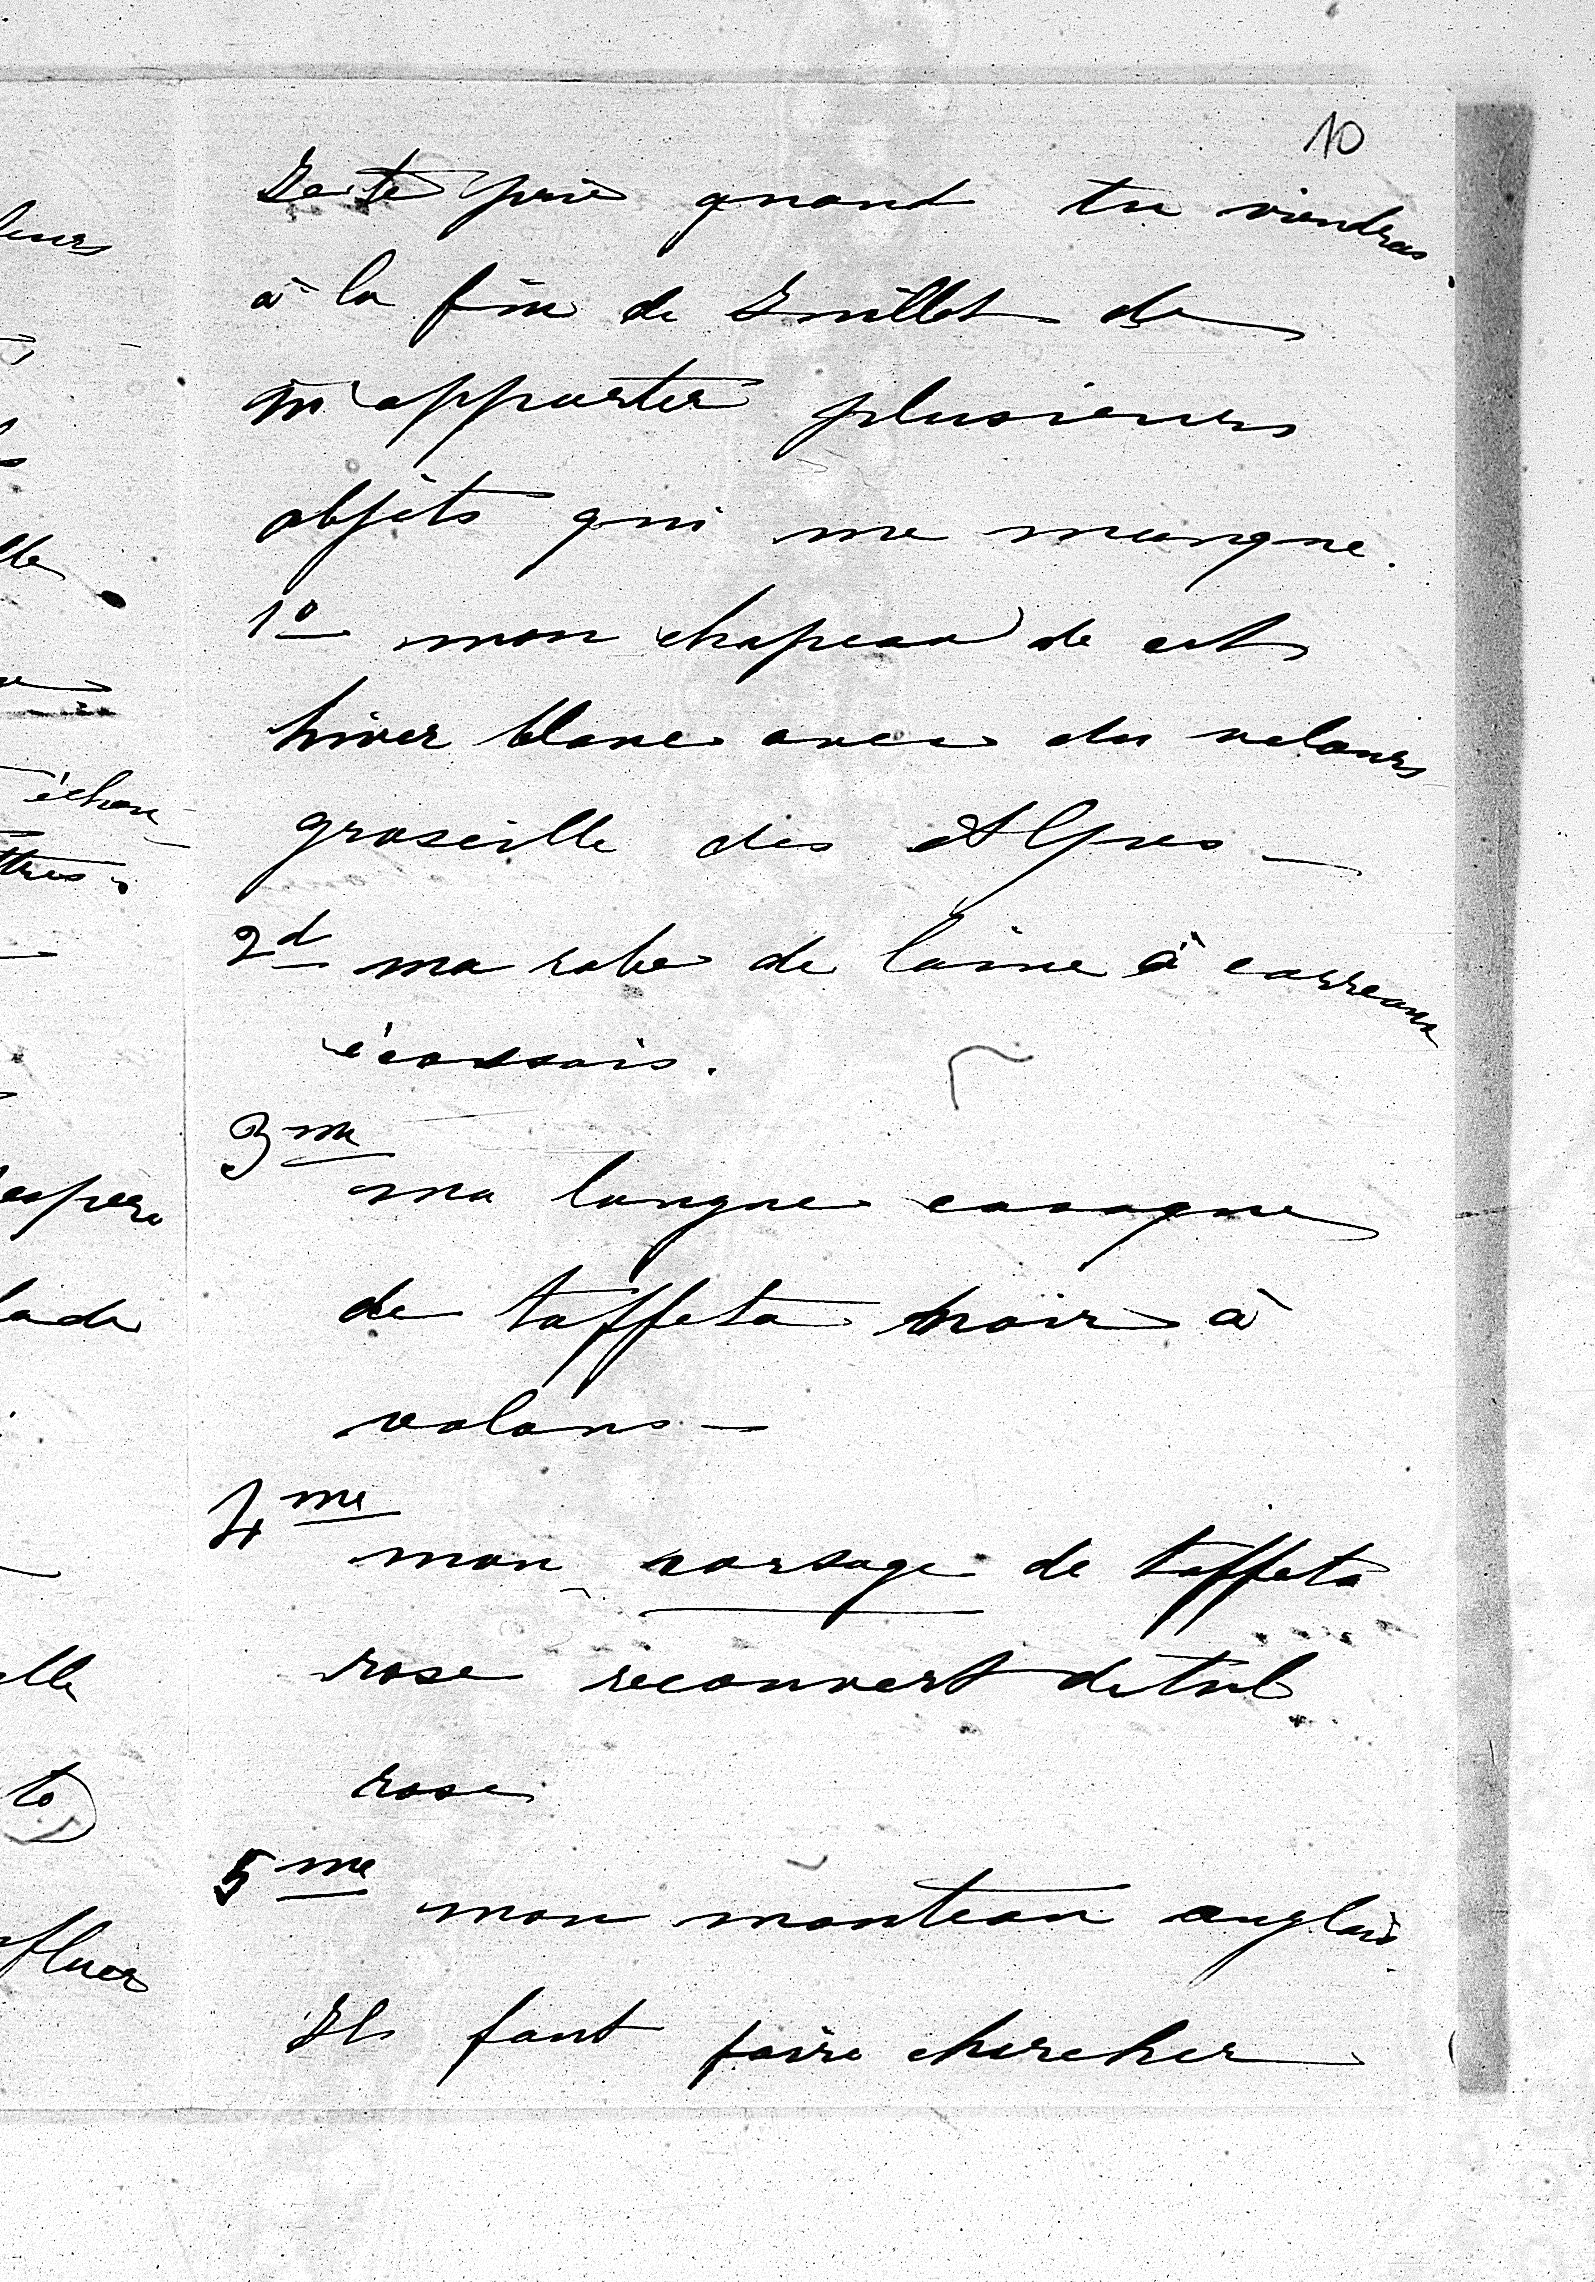 10
Je te prie quand tu viendras
à la fin de Juillet de
m'apporter plusieurs
objets qui me manque.
1º mon chapeau de cet
hiver blanc avec du velours
groseille des Alpes —
2d ma robe de laine à carreaux
écossais.
3me
ma longue casaque
de taffeta noir à
volans —
4me
mon corsage de taffeta
rose recouvert de tul
rose
5me
mon manteau anglais.
Il faut faire chercher
leurs
lle
échan-
ttres.
espere
lade
elle
to
fluer